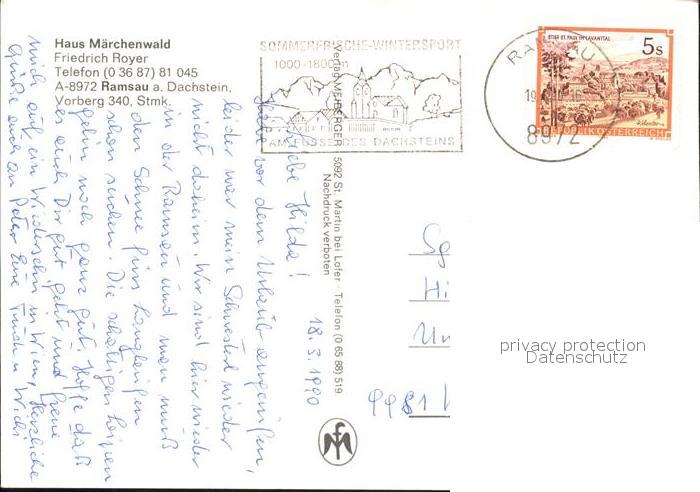 Haus Märchenwald
Friedrich Royer
Telefon (0 36 87) 81 045
A-8972 Ramsau a. Dachstein,
Vorberg 340, Stmk.
SOMMERFRISCHE-WINTERSPORT
1000-1800
AM FUSSE DES DACHSTEINS
RAMSAU
19
8972
STIFT ST. PAUL IM LAVANTTAL
5s
REPUBLIK ÖSTERREICH
Verlag MEHBERGER 5092 St. Martin bei Lofer · Telefon (0 65 88) 519
Nachdruck verboten
18.3.1990
Liebe Hilda!
vor dem Urlaub angerufen,
leider war mein Schwester wieder
nicht daheim. Wir sind hier wieder
in der Ramsau und man muß
den Schnee fürs Langlaufen
schon suchen. Die schattigen
gehn noch ganz gut. Hoffe daß
es auch Dir gut geht und freue
mich auf ein Wiedersehn in Wien. Herzliche
Grüße auch an Peter Eure
Hi
Un
9981
privacy protection
Datenschutz